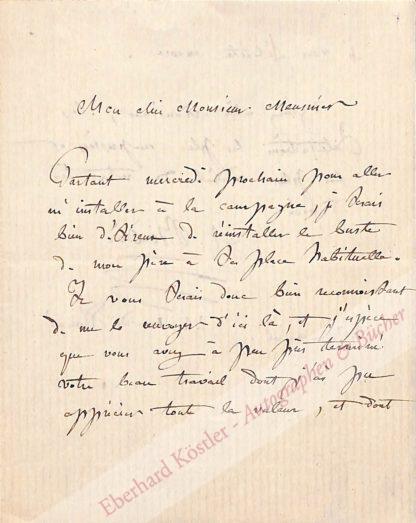 Mon cher Monsieur Meusnier
Partant mercredi prochain pour aller
m'installer à la campagne, je serais
bien désireux de réinstaller le buste
de mon père à sa place habituelle.
Je vous serais donc bien reconnaissant
de me le renvoyer d'ici là, et j'espère
que vous avez à peu près terminé
votre beau travail dont j'ai pu
apprécier toute la valeur, et dont
Eberhard Köstler - Autographen & Bücher